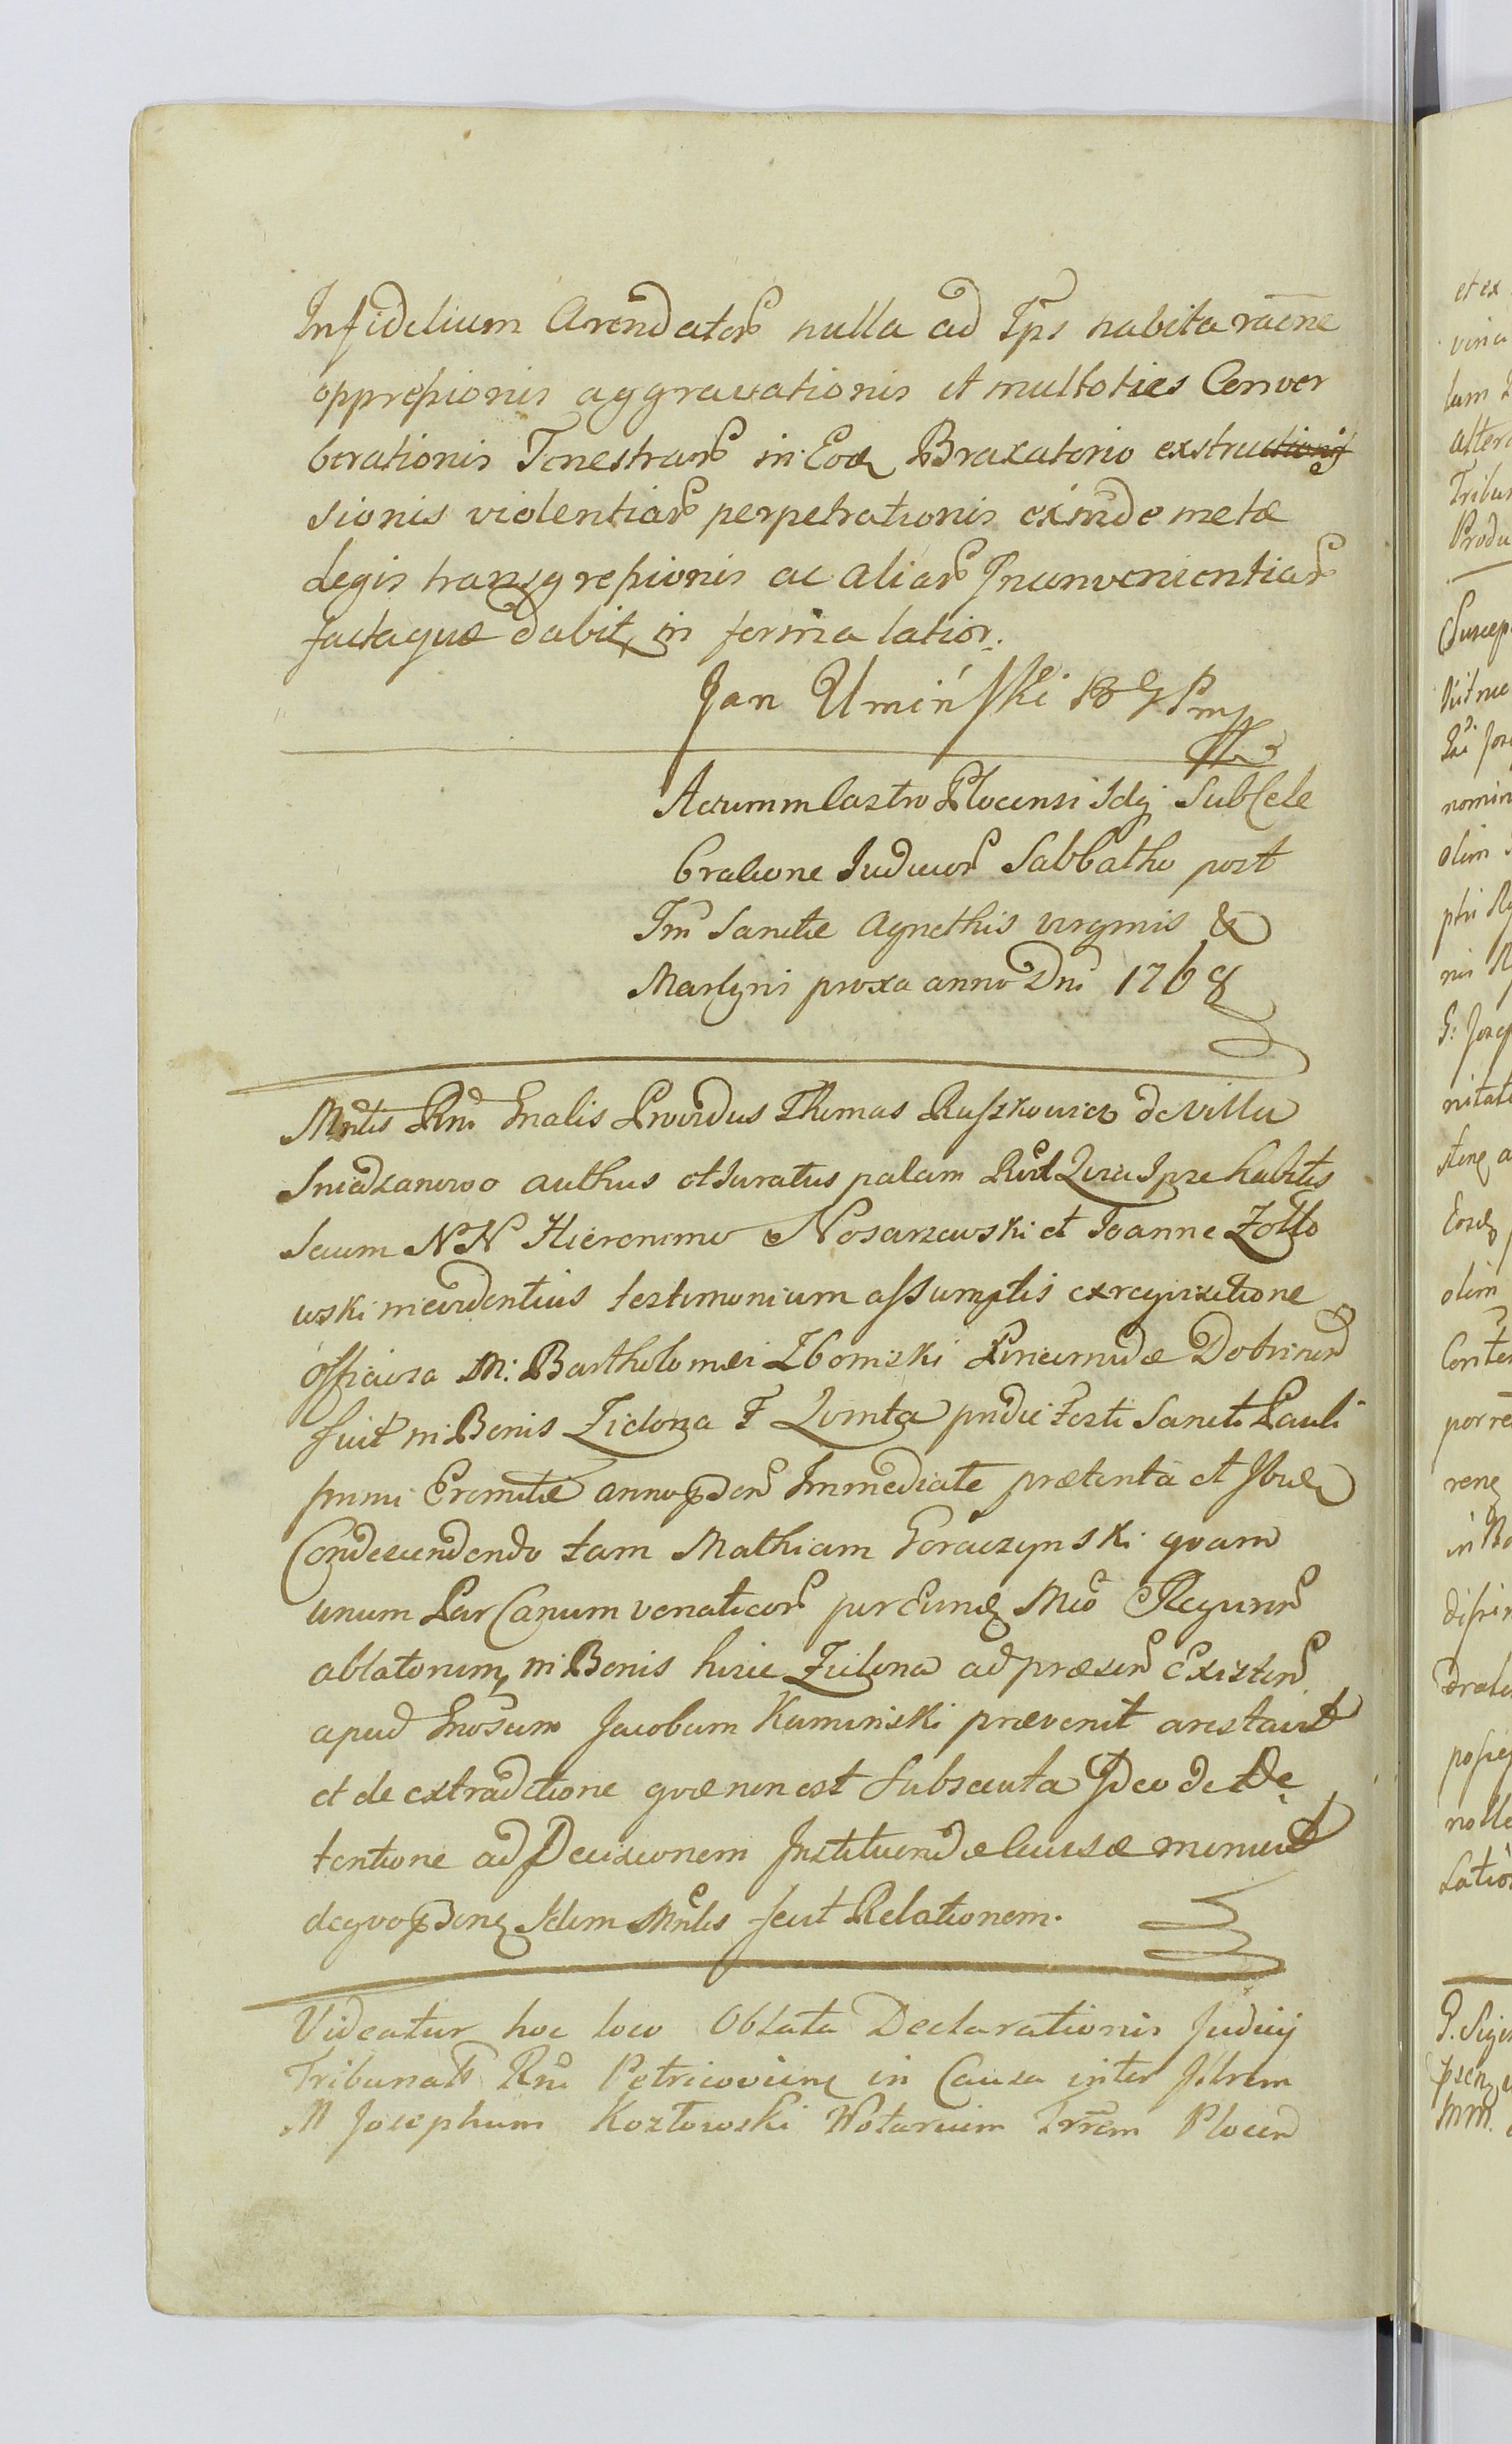 Infidelium Arendator nulla ad Tps habita raõne
oppressionis aggravationis et multoties Conver
berationis Fenestrar in Eod Braxatorio exstructionis
sionis violentiar perpetrationis exinde metæ
Legis transgressionis ac aliar Inconvenientiar
factaque dabit, in forma latior.
Jan Umiński
Actum in Castro Plocensi Idq Sub Cele
bratione Iudicior Sabbatho post
Fm Sanctæ Agnethis virginis &
Martyris proxo anno Dni 1768
Mntis Rni Gnalis Providus Thomas Ruszkowicz de villa
Sniadzanowo authus et Iuratus palam Rcvt Quia Ipse habitis
Secum NN Hieronimo Nosarzewski et Joanne Zołto
wski in evidentius testimonium assumptis ex requisitione
officiosa M: Bartholomæi Zboinski Pincernidæ Dobrinen
fuit in Bonis Zielona F Quinta pridie Festi Sancti Pauli
primi Eremitæ anno præsen Immediate præterita et Ibid
Condescendendo tam Mathiam Goraczynski quam
unum Par Canum venaticor per Eund Mco Requiren
ablatorum, in Bonis hisce Zielona ad præsen Existen
apud Gnosum Jacobum Kaminski prævenit arestavit
et de extraditione quæ non est subsecuta Ideo de De
tentione ad Decisionem Instituendæ Causæ monuit
de quo Idem Mntis fecit Relationem.
Videatur hoc loco Oblata Declarationis Judicij
Tribunalis Rni Petricovien in Causa inter Illrem
M Josephum Kozłowski Notarium Trrem Plocen